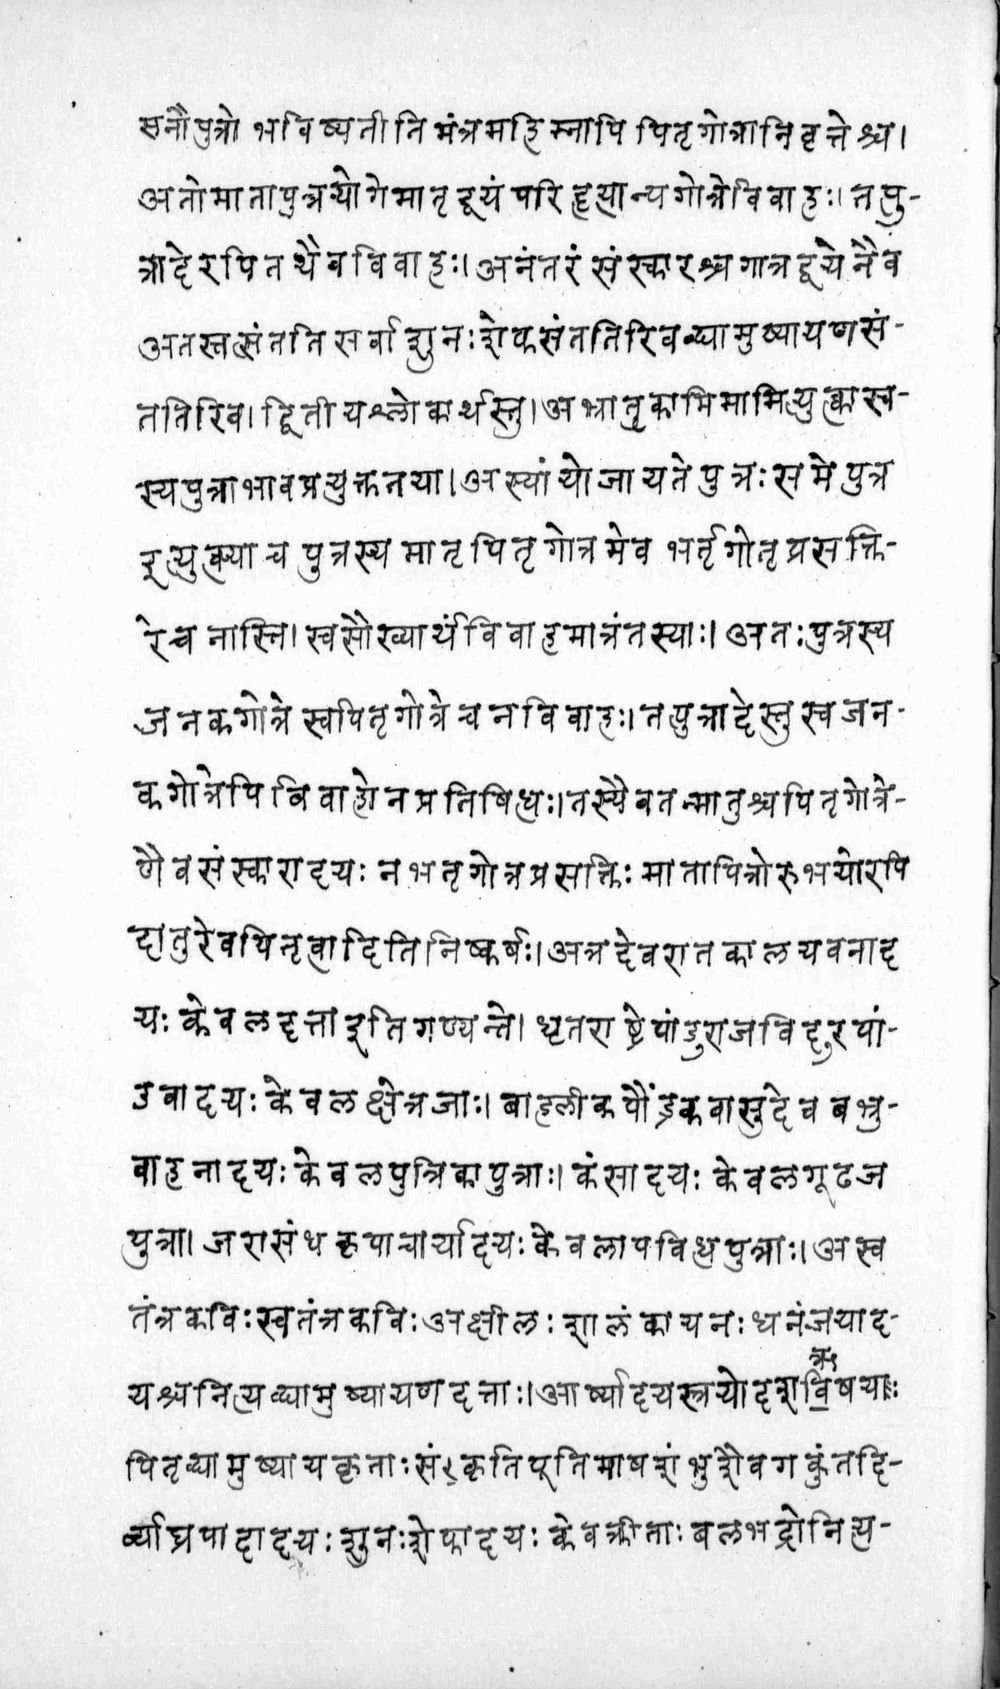 सनौपुत्रो भविष्यतीति मंत्रमहिम्नापि पितृगोत्रानिवृत्तेश्च।
अतोमातापुत्रयोगेमातृद्वयं परिहृत्यान्यगोत्रेविवाहः। तत्पु-
त्रादेरपितथैवविवाहः। अनंतरं संस्कारश्च गात्रद्वयेनैव
अतस्तत्संततिसर्वा शुनःशेफसंततिरिवद्व्यामुष्यायणसं-
ततिरिव। द्वितीयश्लोकार्थस्तु। अभ्रातृकामिमामित्युत्क्वास्व-
स्यपुत्राभावप्रयुक्ततया। अस्यां यो जायते पुत्रः स मे पुत्र
इत्युक्त्या च पुत्रस्य मातृपितृगोत्रमेव भर्तृगोतृप्रसक्ति-
रेव नास्ति। स्वसौख्यार्थं विवाहमात्रंतस्याः। अतः पुत्रस्य
जनकगोत्रे स्वपितृगोत्रे च न विवाहः। तत्पुत्रादेस्तु स्वजन-
कगोत्रेपि विवाहो न प्रतिषिद्धः। तस्यैवतन्मातुश्चपितृगोत्रे-
णैवसंस्कारादयः न भतृगोत्रप्रसक्तिः मातापित्रोरुभयोरपि
दातुरेवपितृत्वादिति निष्कर्षः। अत्र देवरातकालयवनाद
यः केवलदत्ता इति गण्यन्ते। धृतराष्ट्रेपांडुराजविदुरपां-
डवादयः केवलक्षेत्रजाः। बाहलीकपौंड्रकवासुदेवबभ्रु-
वाहनादयः केवलपुत्रिकापुत्राः। कंसादयः केवलगूढज
पुत्रा। जरासंधकृपाचार्यादयः केवलापविद्धपुत्राः। अस्व
तंत्रकविः स्वतंत्रकविः अक्षीलः शालंकायनः धनंजयाद-
यश्च नित्यद्व्यामुष्यायणदत्ताः। आर्ष्यादयस्त्रयोदशविषयाः
ऋ
पितृव्यामुष्यायकृताः संस्कृतिपूतिमाषशंभुशैवगकुंतदि-
र्व्याघ्रपादादयः शुनःशेफादयः केवक्रीताः बलभद्रो नित्य-